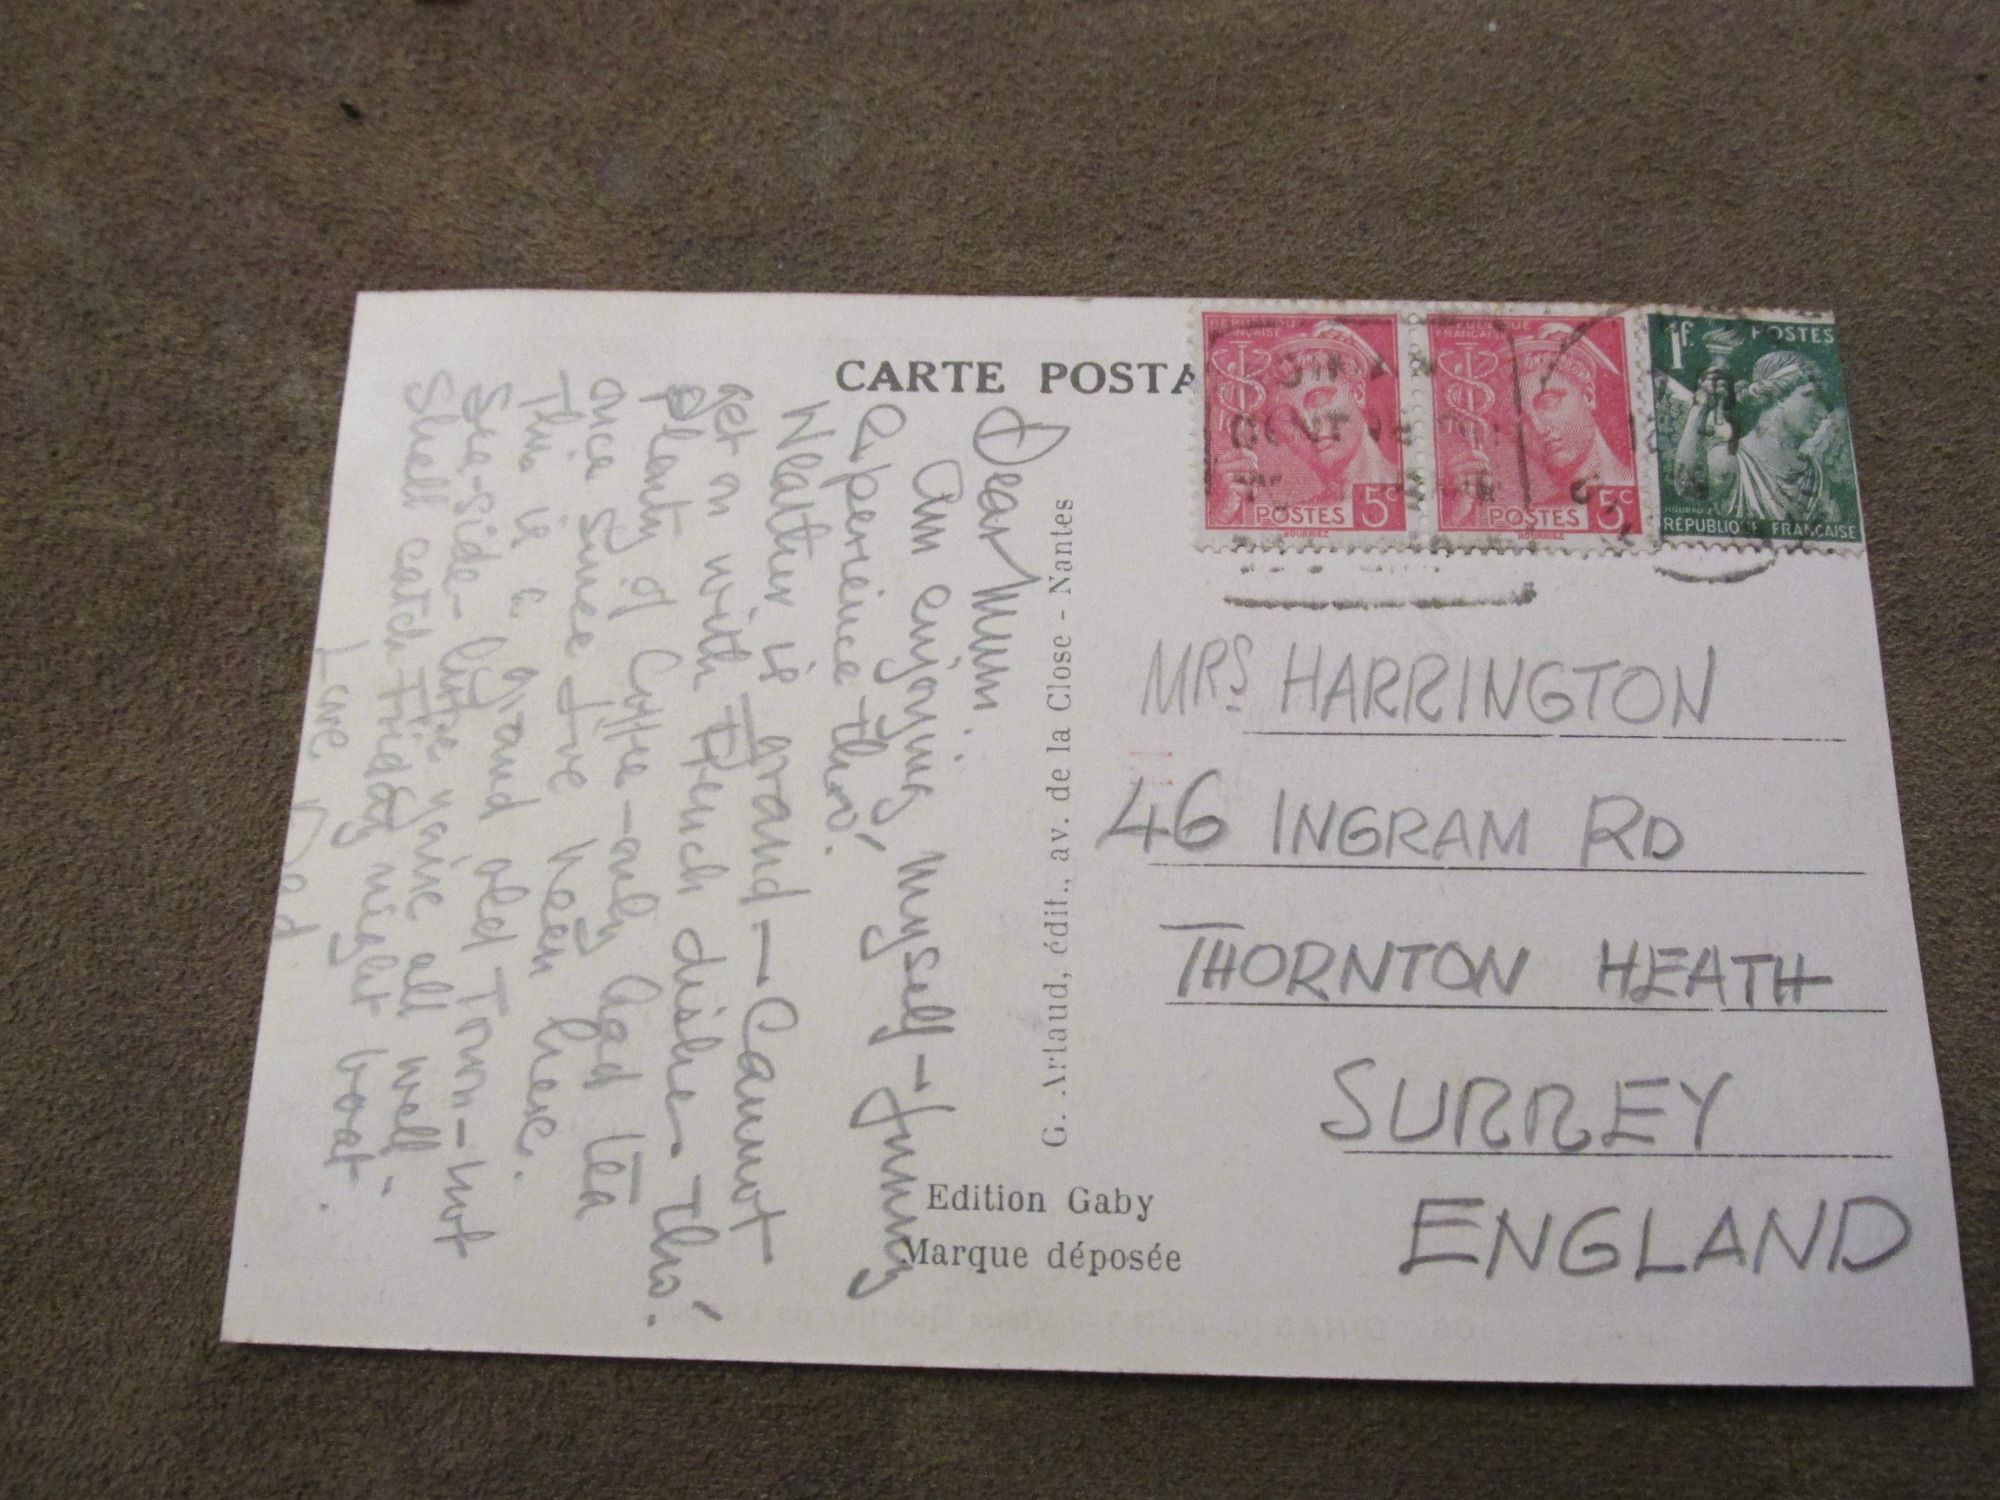 CARTE POSTA
RÉPUBLIQUE
FRANÇAISE
POSTES 5c
BOURRIEZ
RÉPUBLIQUE
FRANÇAISE
POSTES 5c
BOURRIEZ
1F POSTES
HOURRIEZ
RÉPUBLIQUE FRANÇAISE
Dear Mum
Am enjoying myself - funny
experience tho'.
Weather is grand - Cannot
get on with French dishes tho'.
plenty of Coffee - only had tea
once since I've been here.
This is a grand old Town - not
Sea-side - hope you're all well -
Shall catch Friday night boat.
Love
G. Artaud, édit., av. de la Close - Nantes
Edition Gaby
Marque déposée
MRS HARRINGTON
46 INGRAM RD
THORNTON HEATH
SURREY
ENGLAND